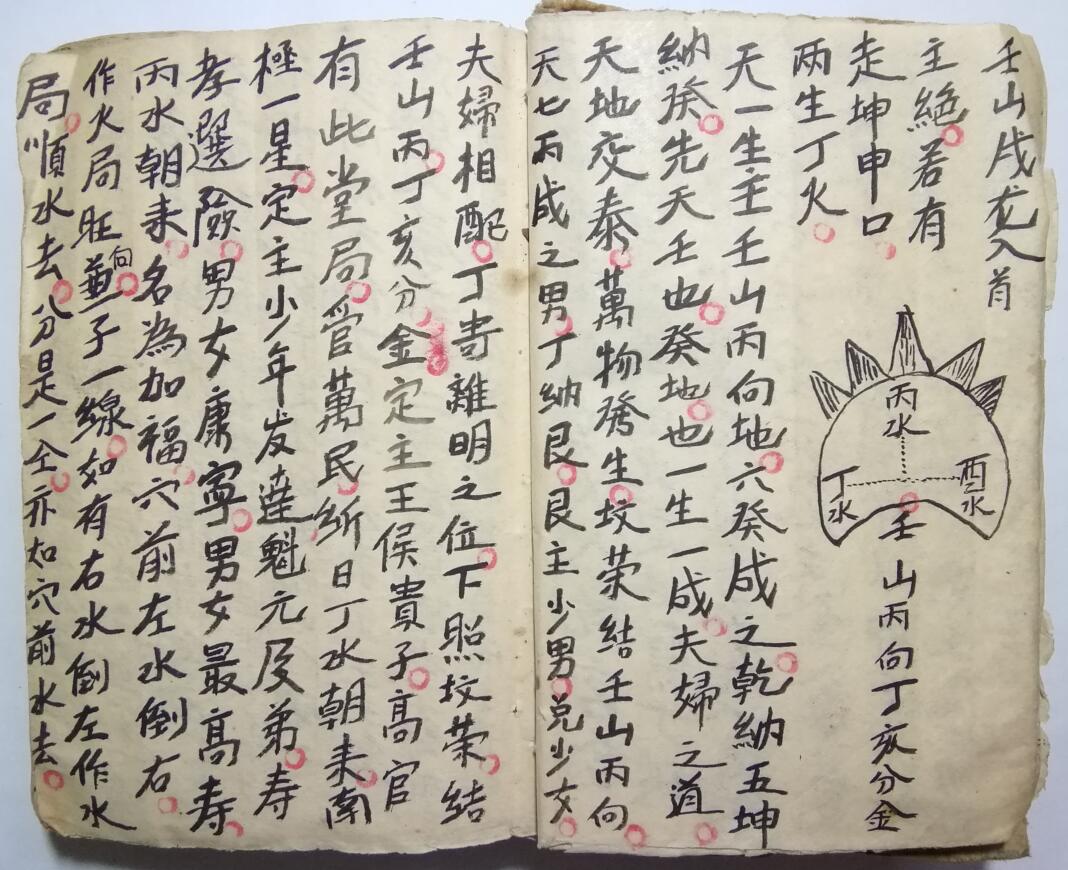 壬山戌龙入首
主絕。若有
走坤申口。
两生丁火。
丙水
丁水
酉水
壬山丙向丁亥分金
天一生主壬山丙向地。六癸成之。乾納五坤
納癸。先天壬也。癸地。也一生一成。夫婦之道。
天地交泰。萬物發生。坟荣結壬山丙向。
天七丙成之男。丁納艮。艮主少男。兑少女。
夫婦相配。丁寄離明之位。下照坟荣。結
壬山丙。丁亥分金定主王侯貴子。高官
有此堂局。管萬民。斩日丁水朝来。南
極一星。定主少年发達魁元及弟。寿
孝選險。男女康寧。男女最高寿。
丙水朝来。名為加福。穴前左水倒右。
作火局旺向。兼子一線。如有右水倒左作水
局。順水去。分是一仝。亦如穴前水去。